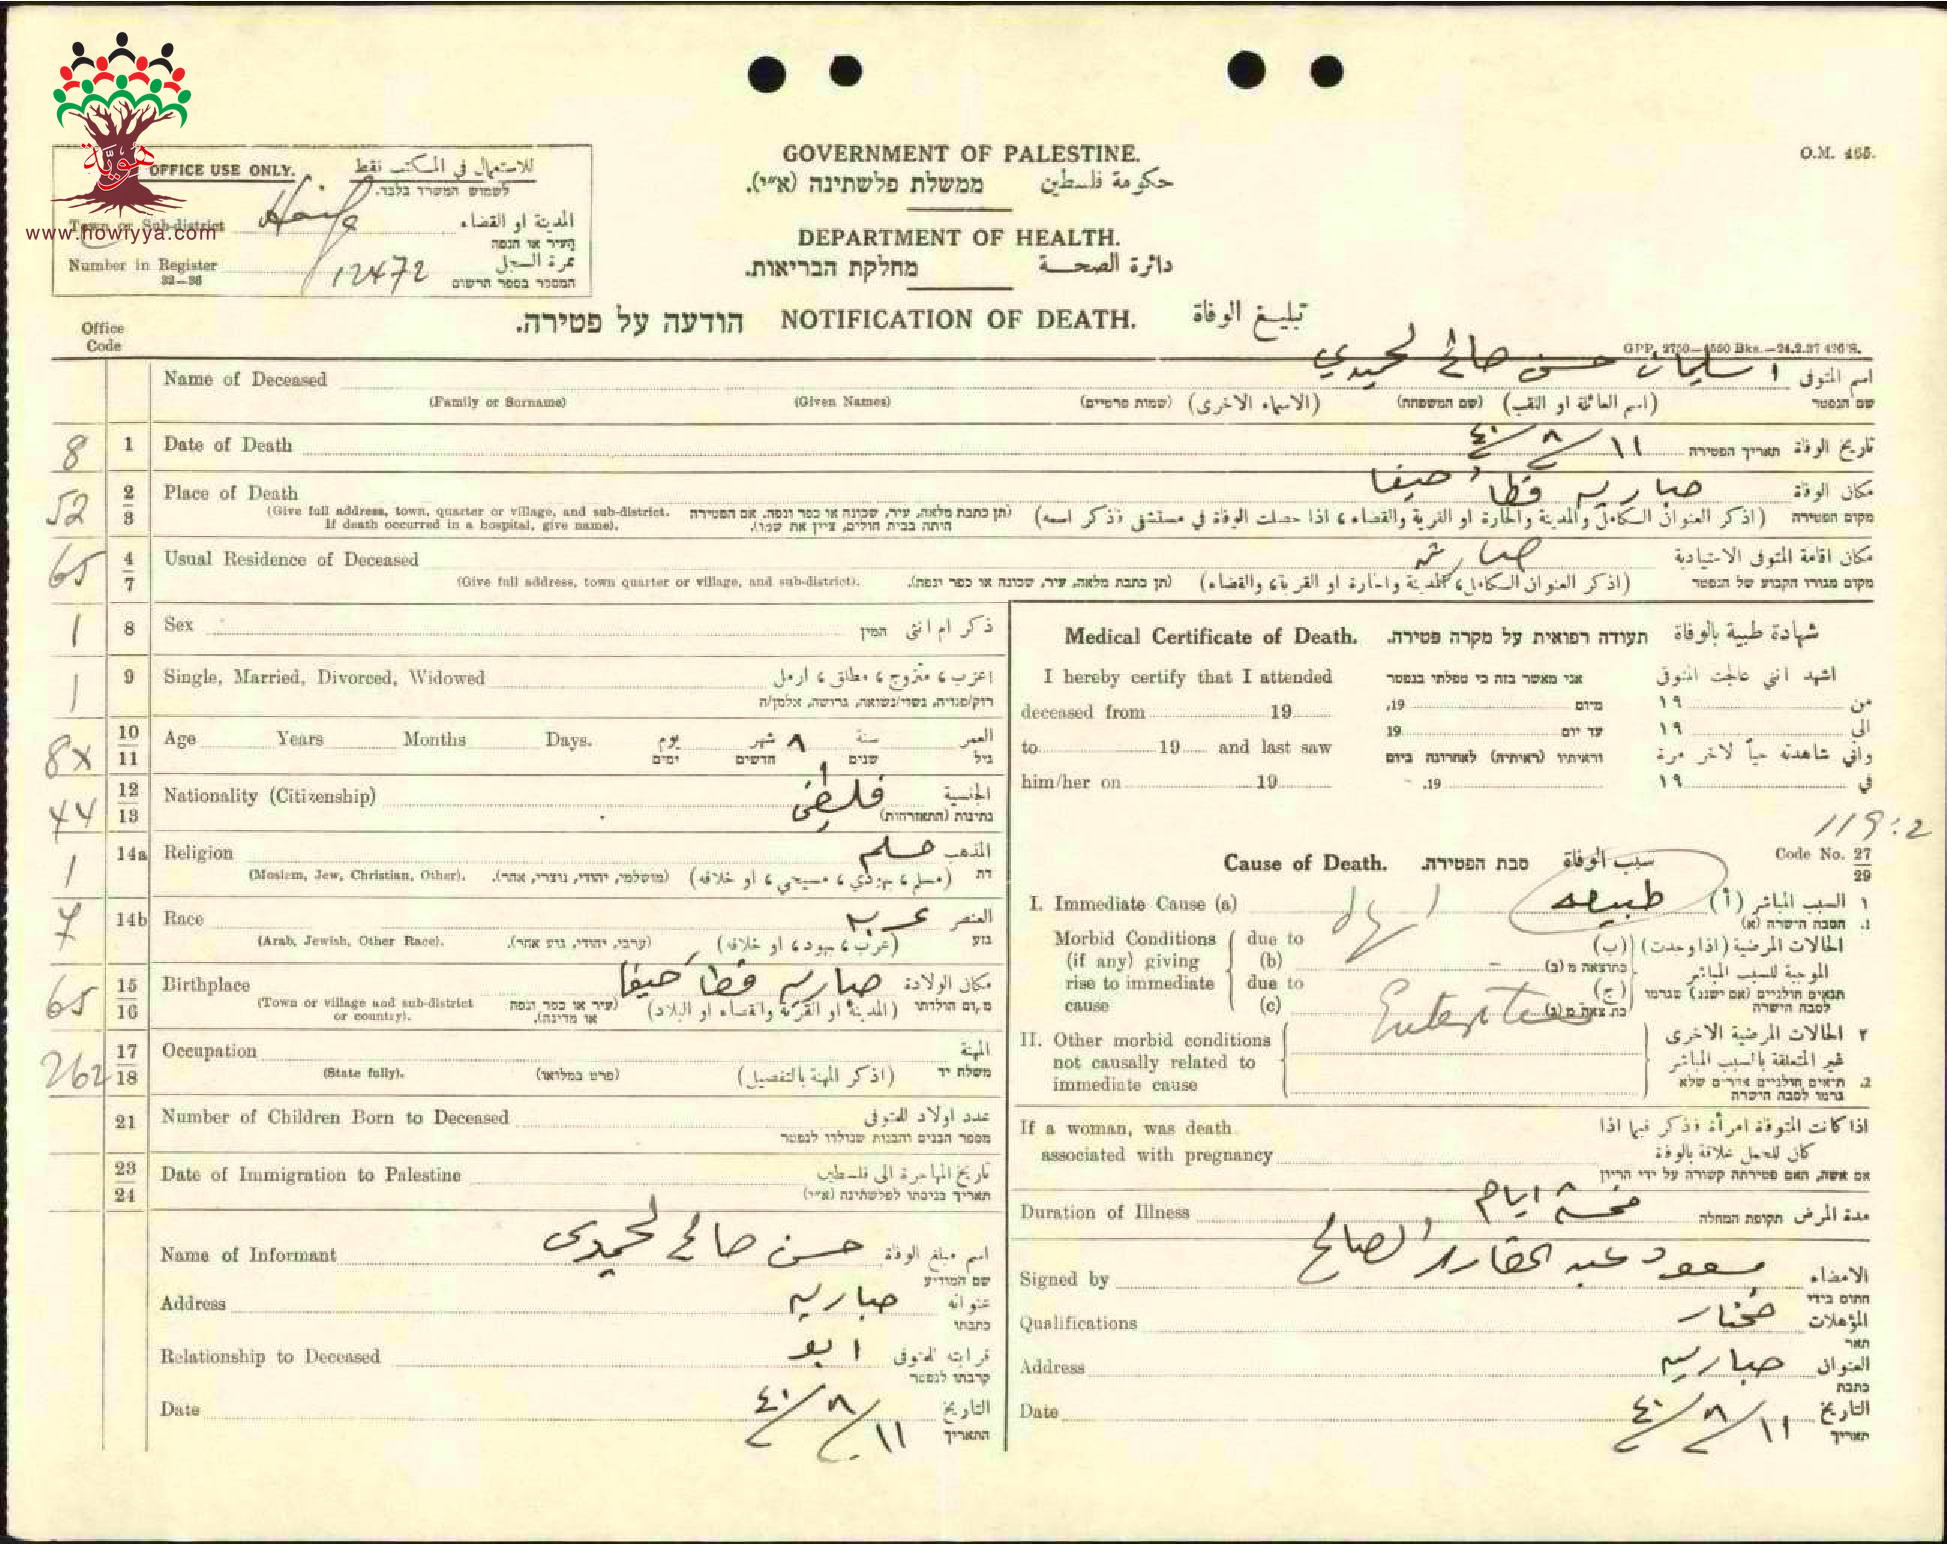 هويّة
www.howiyya.com
OFFICE USE ONLY. للاستعمال في المكتب فقط
לשמוש המשרד בלבד.
Town or Sub-district Haifa المدينة او القضاء
העיר או הנפה
Number in Register 12472 نمرة السجل
32—36 המספר בספר הרשום
GOVERNMENT OF PALESTINE.
ממשלת פלשתינה (א״י). حكومة فلسطين
DEPARTMENT OF HEALTH.
מחלקת הבריאות. دائرة الصحة
O.M. 465.
הודעה על פטירה. NOTIFICATION OF DEATH. تبليغ الوفاة
Office
Code
GPP. 2750—4550 Bks.—24.2.37 436/S.
Name of Deceased سليمان حسن صالح الحميدي اسم المتوفى
(Family or Surname) (Given Names) (שמות פרטיים) (الاسماء الاخرى) (שם המשפחה) (اسم العائلة او اللقب) שם הנפטר
8 1 Date of Death ١١/٨/٤٠ תאריך הפטירה تاريخ الوفاة
52 2 3 Place of Death صبارين قضاء حيفا مكان الوفاة
(Give full address, town, quarter or village, and sub-district. (תן כתבת מלאה, עיר, שכונה או כפר ונפה. אם הפטירה (اذكر العنوان الكامل والمدينة والحارة او القرية والقضاء، اذا حصلت الوفاة في مستشفى فذكر اسمه) מקום הפטירה
If death occurred in a hospital, give name). היתה בבית חולים, ציין את שמו).
65 4 7 Usual Residence of Deceased صبارين مكان اقامة المتوفى الاعتيادية
(Give full address, town quarter or village, and sub-district). (תן כתבת מלאה, עיר, שכונה או כפר ונפה). (اذكر العنوان الكامل، المدينة والحارة او القرية، والقضاء) מקום מגורו הקבוע של הנפטר
1 8 Sex המין ذكر ام انثى
1 9 Single, Married, Divorced, Widowed اعزب، متزوج، مطلق، ارمل
רוק/פנויה, נשוי/נשואה, גרושה, אלמן/ה
8x 10 11 Age Years Months Days. يوم شهر ٨ سنة العمر
ימים חדשים שנים גיל
44 12 13 Nationality (Citizenship) فلسطيني الجنسية
נתינות (התאזרחות)
1 14a Religion مسلم المذهب
(Moslem, Jew, Christian, Other). (מושלמי, יהודי, נוצרי, אחר). (مسلم، يهودي، مسيحي، او خلافه) דת
7 14b Race عرب العنصر
(Arab, Jewish, Other Race). (ערבי, יהודי, גזע אחר). (عرب، يهود، او خلافه) גזע
65 15 16 Birthplace صبارين قضاء حيفا مكان الولادة
(Town or village and sub-district or country). (עיר או כפר ונפה או מדינה). (المدينة او القرية والقضاء او البلاد) מקום הולדתו
262 17 18 Occupation المهنة
(State fully). (פרט במלואו) (اذكر المهنة بالتفصيل) משלח יד
21 Number of Children Born to Deceased عدد اولاد المتوفى
מספר הבנים והבנות שנולדו לנפטר
23 24 Date of Immigration to Palestine تاريخ المهاجرة الى فلسطين
תאריך כניסתו לפלשתינה (א״י)
Name of Informant حسن صالح الحميدي اسم مبلغ الوفاة
שם המודיע
Address صبارين عنوانه
כתבתו
Relationship to Deceased ابو قرابته للمتوفى
קרבתו לנפטר
Date ١١/٨/٤٠ التاريخ
התאריך
Medical Certificate of Death. תעודה רפואית על מקרה פטירה. شهادة طبية بالوفاة
I hereby certify that I attended אני מאשר בזה כי טפלתי בנפטר اشهد انني عالجت المتوفى
deceased from 19 19, מיום ١٩ من
to 19 and last saw 19 עד יום ١٩ الى
וראיתיו (ראיתיה) לאחרונה ביום واني شاهدته حياً لاخر مرة
him/her on 19 19. ١٩ في
119:2
Cause of Death. סבת הפטירה. سبب الوفاة Code No. 27 29
I. Immediate Cause (a) طبيعية (أ) السبب المباشر ١
1. הסבה הישרה (א)
Morbid Conditions due to (ب) الحالات المرضية (اذا وجدت)
(if any) giving (b) כתוצאה מ (ב) الموجبة للسبب المباشر
rise to immediate due to (ج) תנאים חולניים (אם ישנם) שגרמו
cause (c) Enteritis כתוצאה מ (ג) לסבה הישרה
II. Other morbid conditions ٢ الحالات المرضية الاخرى
not causally related to غير المتعلقة بالسبب المباشر
immediate cause 2. תנאים חולניים אחרים שלא
גרמו לסבה הישרה
If a woman, was death اذا كانت المتوفة امرأة فذكر فيما اذا
associated with pregnancy كان للحمل علاقة بالوفاة
אם אשה, האם פטירתה קשורה על ידי הריון
Duration of Illness خمسة ايام תקופת המחלה مدة المرض
Signed by مسعود عبد القادر الصالح الامضاء
חתום בידי
Qualifications مختار المؤهلات
תאר
Address صبارين العنوان
כתבת
Date ١١/٨/٤٠ التاريخ
תאריך